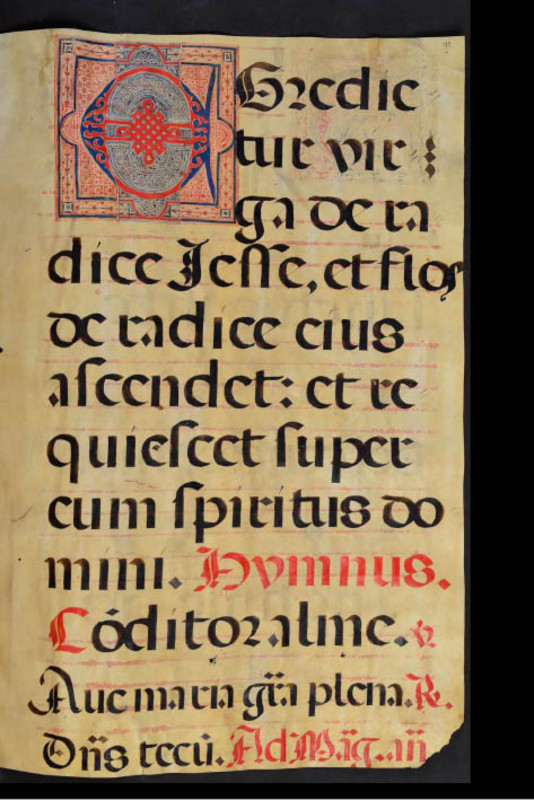 EGredie
tur vir
ga de ra
dice Jesse, et flos
de radice eius
ascendet: et re
quiescet super
eum spiritus do
mini. Hymnus.
Cōditor alme. V.
Ave maria grã plena. R.
Dñs tecū. Ad Mãg. añ